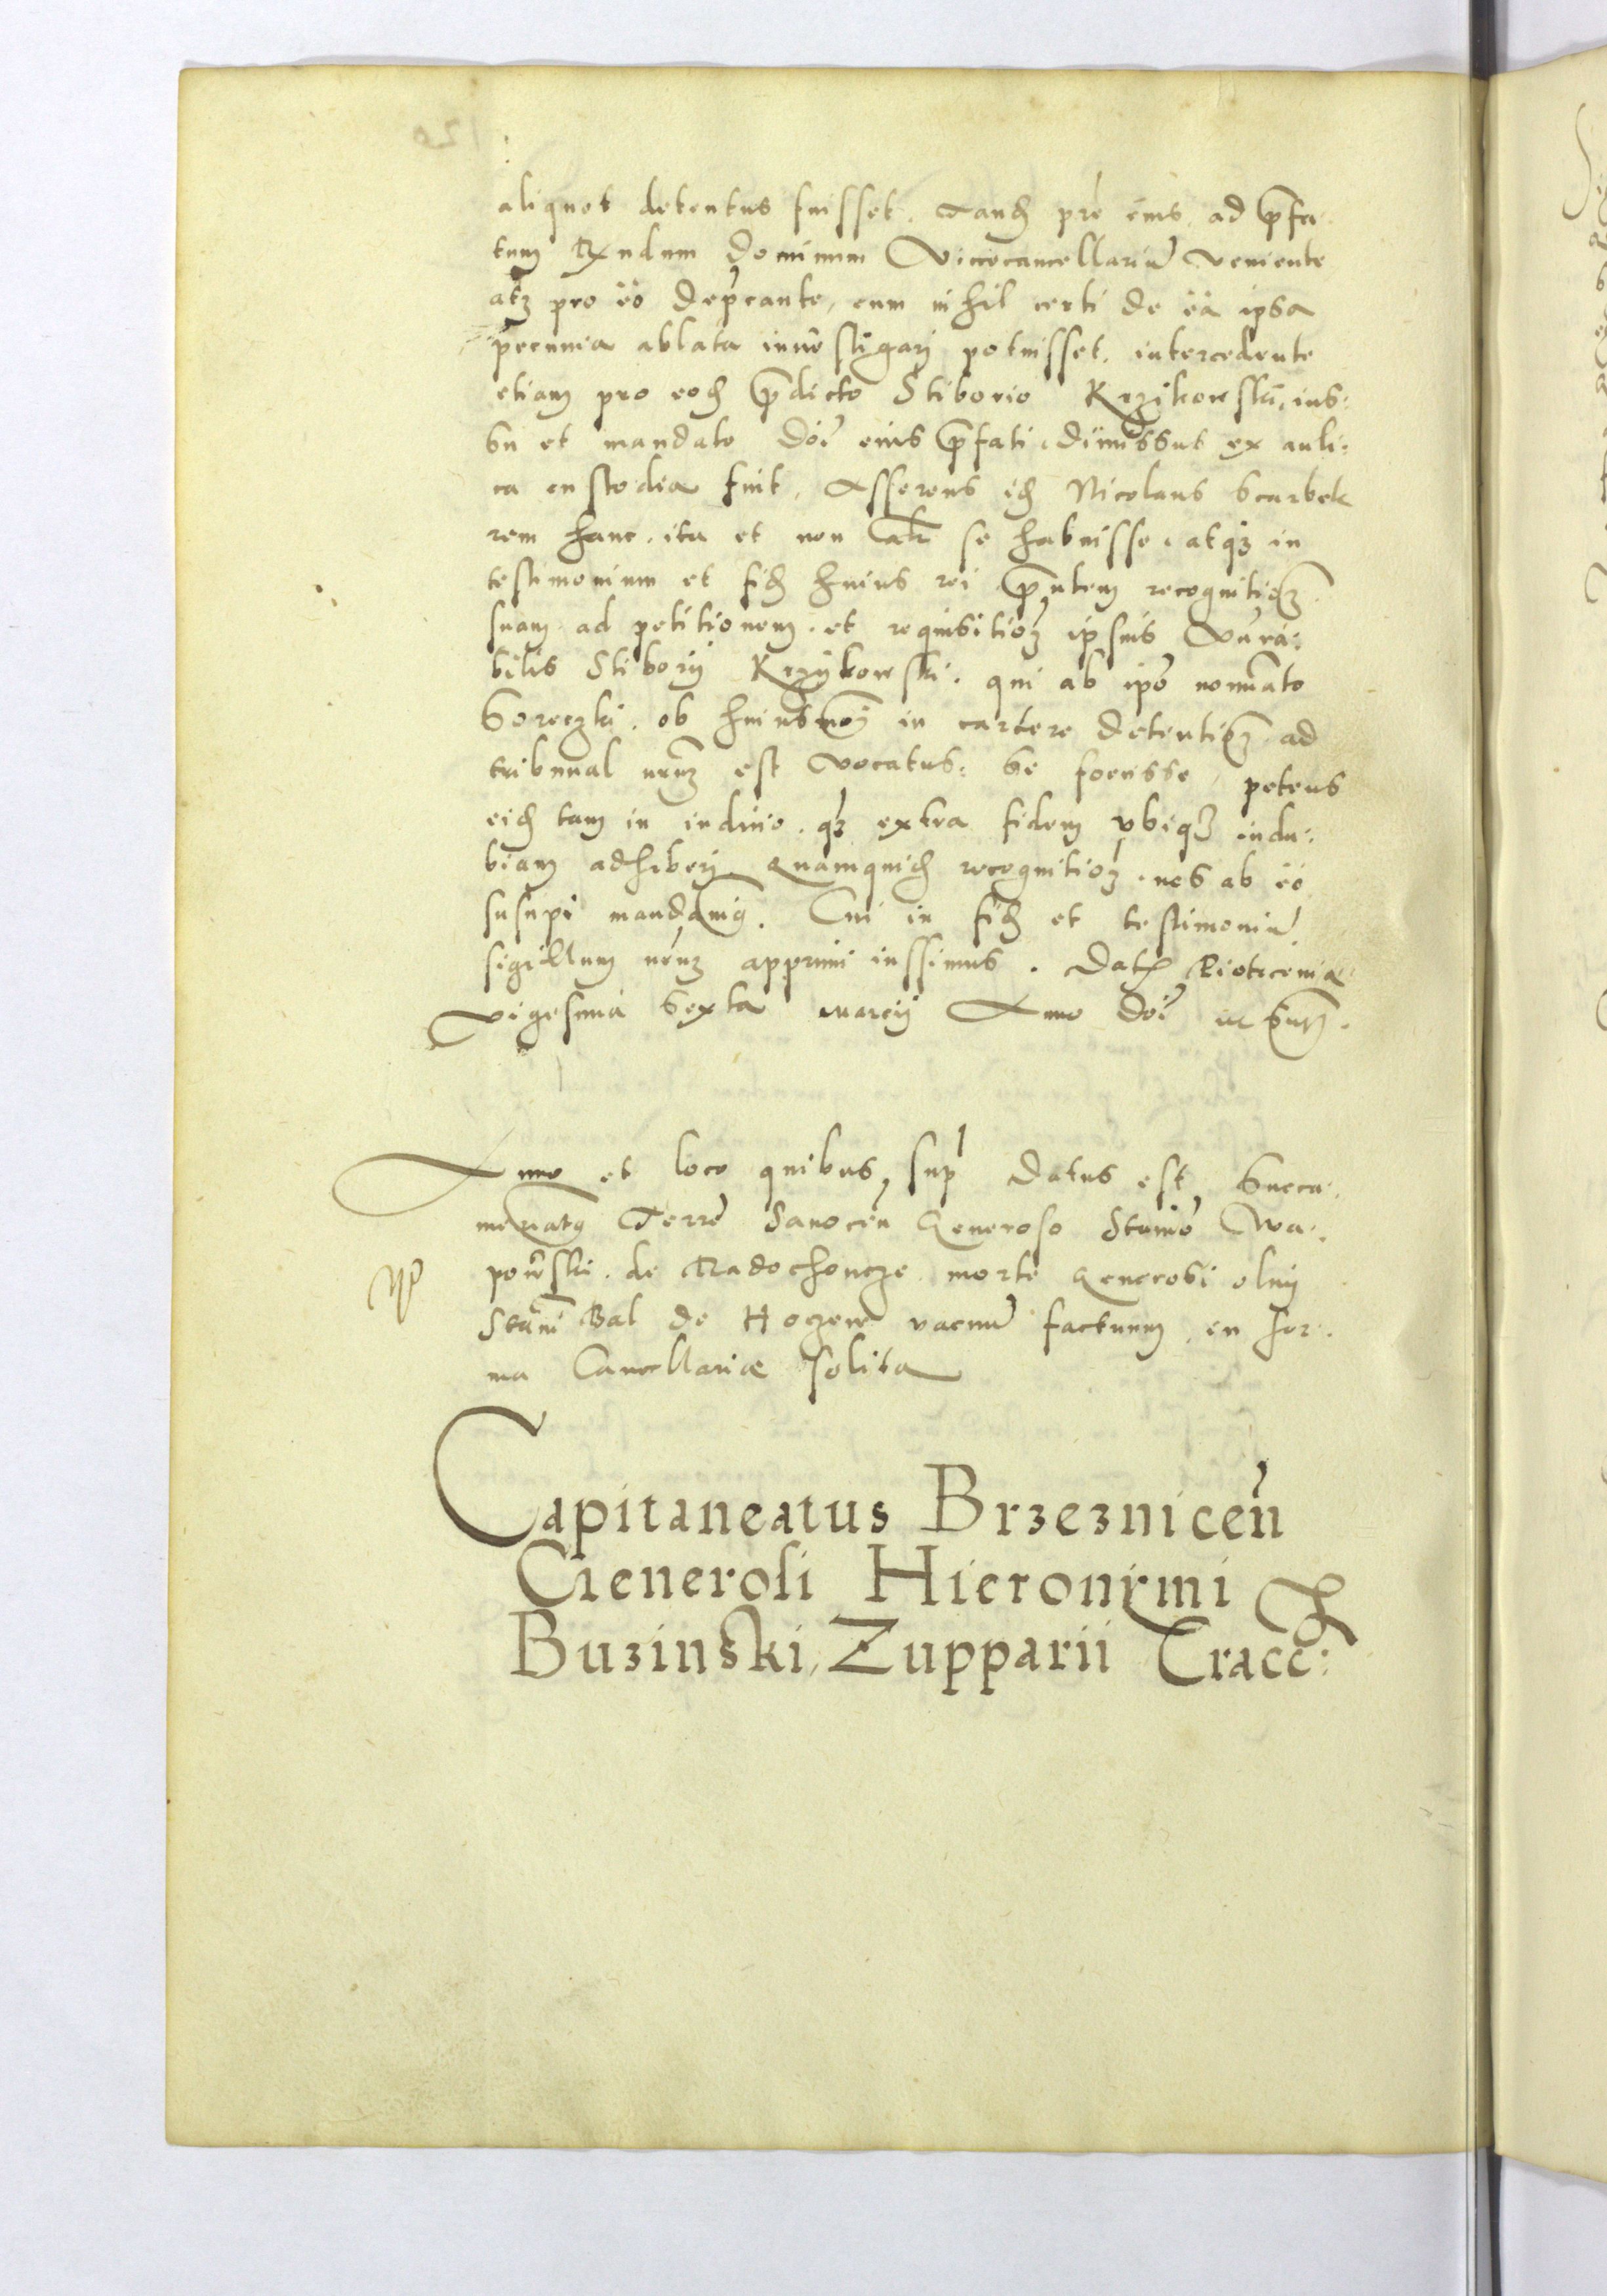 aliquot detentus fuisset. Tandē pr̄e eius ad p̄fa
tum Rx̄ndum dominum Vicecancellariū veniente
atq̨ pro eo dep̄cante, cum nihil certi de ea ipsa
pecunia ablata inuestigarj potuisset, intercedente
etiam pro eodē p̄dicto Stiborio Krzikowski, ius:
su et mandato dn̄i eius p̄fati, dimissus ex auli:
ca custodia fuit, Asserens idē Nicolaus Scarbek
rem hanc, ita et non alr̄ se habuisse, atq̨ in
testimonium et fidē huius rei p̄ntem recognitioꝫ
suam ad petitionem et requisitioꝫ ipsius Ven̄era:
bilis Stiborij Krzykowski, qui ab ip̄o nominato
Soreczki, ob huiusmoj in carcere detentioꝫ ad
tribunal nr̄uꝫ est vocatus: se foecisse, petens
eidē tam in iudicio, qꝫ extra fidem vbiqꝫ indu:
biam adhiberj. Quamquidē recognitioꝫ nos ab eo
suscipi mandauimꝰ. Cui in fidē et testimoniū
sigillum nr̄uꝫ apprimi iussimus. Datꝫ Piotrcouiæ
vigesima sexta marcij Anno dn̄i ut supꝫ.
Anno et loco quibus sup̄ datus est Succa:
meratꝰ Terre Sanocen̄ Generoso Stanio Wa:
powski de Radochoncze morte Generosi olim
Stani Bal de Hoczew vacuū factum, in for:
ma Cancellariæ solita
Capitaneatus Brzeznicen̄
Generosi Hieronymi
Buzinski, Zupparii Cracc: